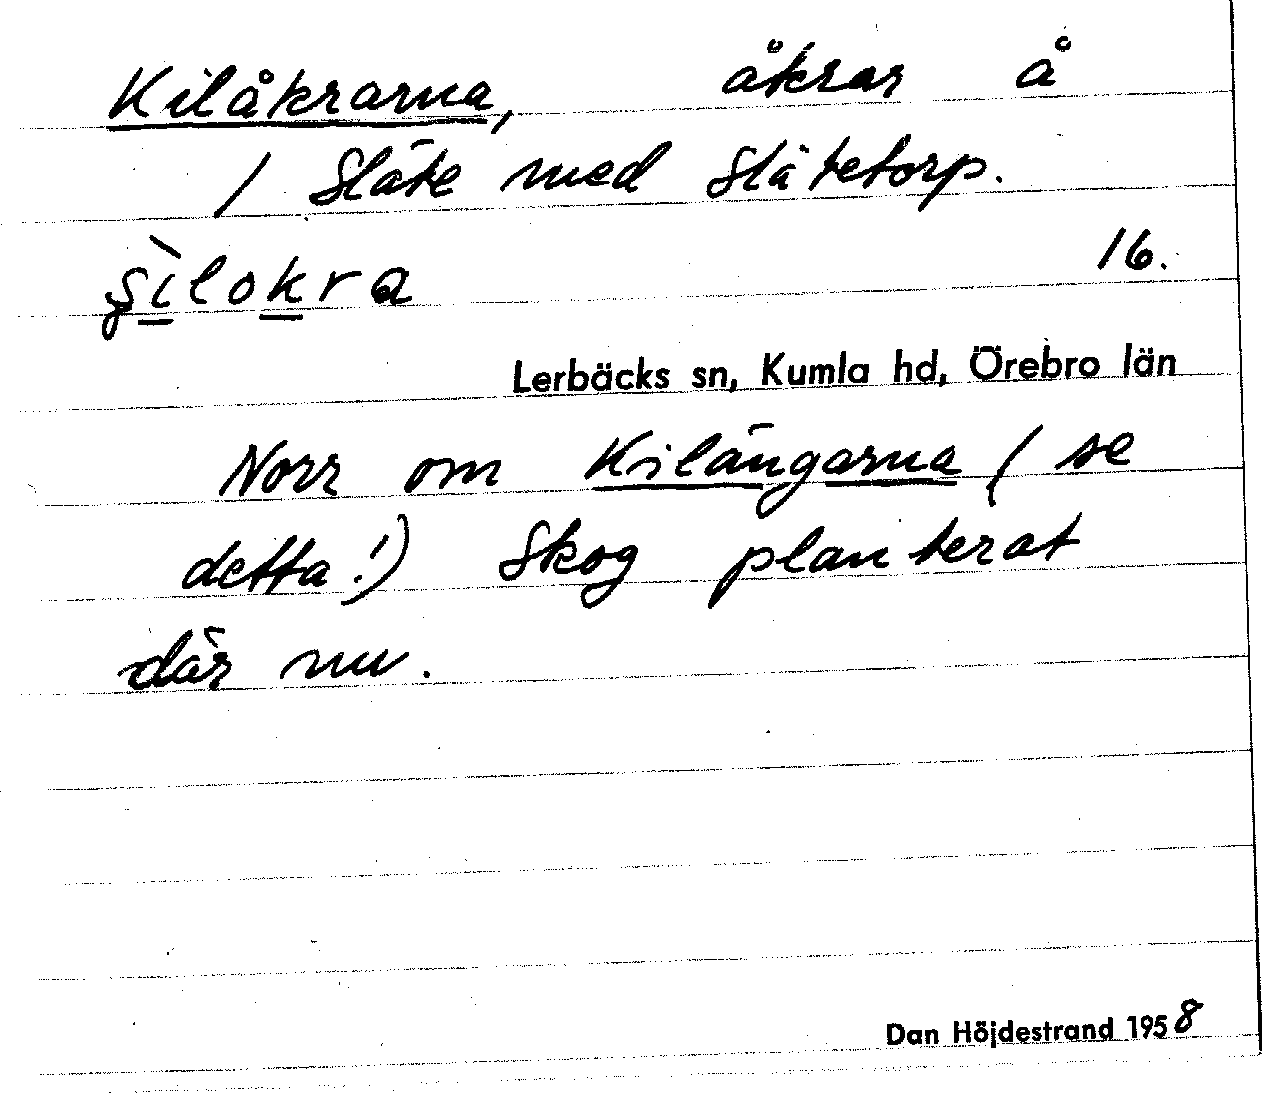 Kilåkrarna, åkrar å
/ Släte med Slätetorp.
şìlokra 16.
Lerbäcks sn, Kumla hd, Örebro län
Norr om Kilängarna (se
detta!) Skog planterat
där nu.
Dan Höjdestrand 1958